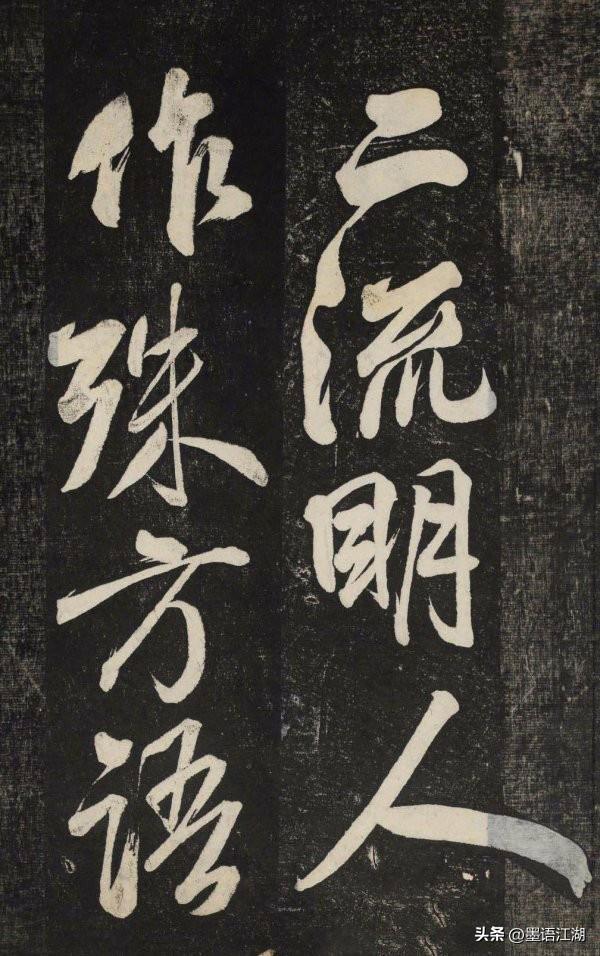 二流明人
作殊方语
头条 @墨语江湖